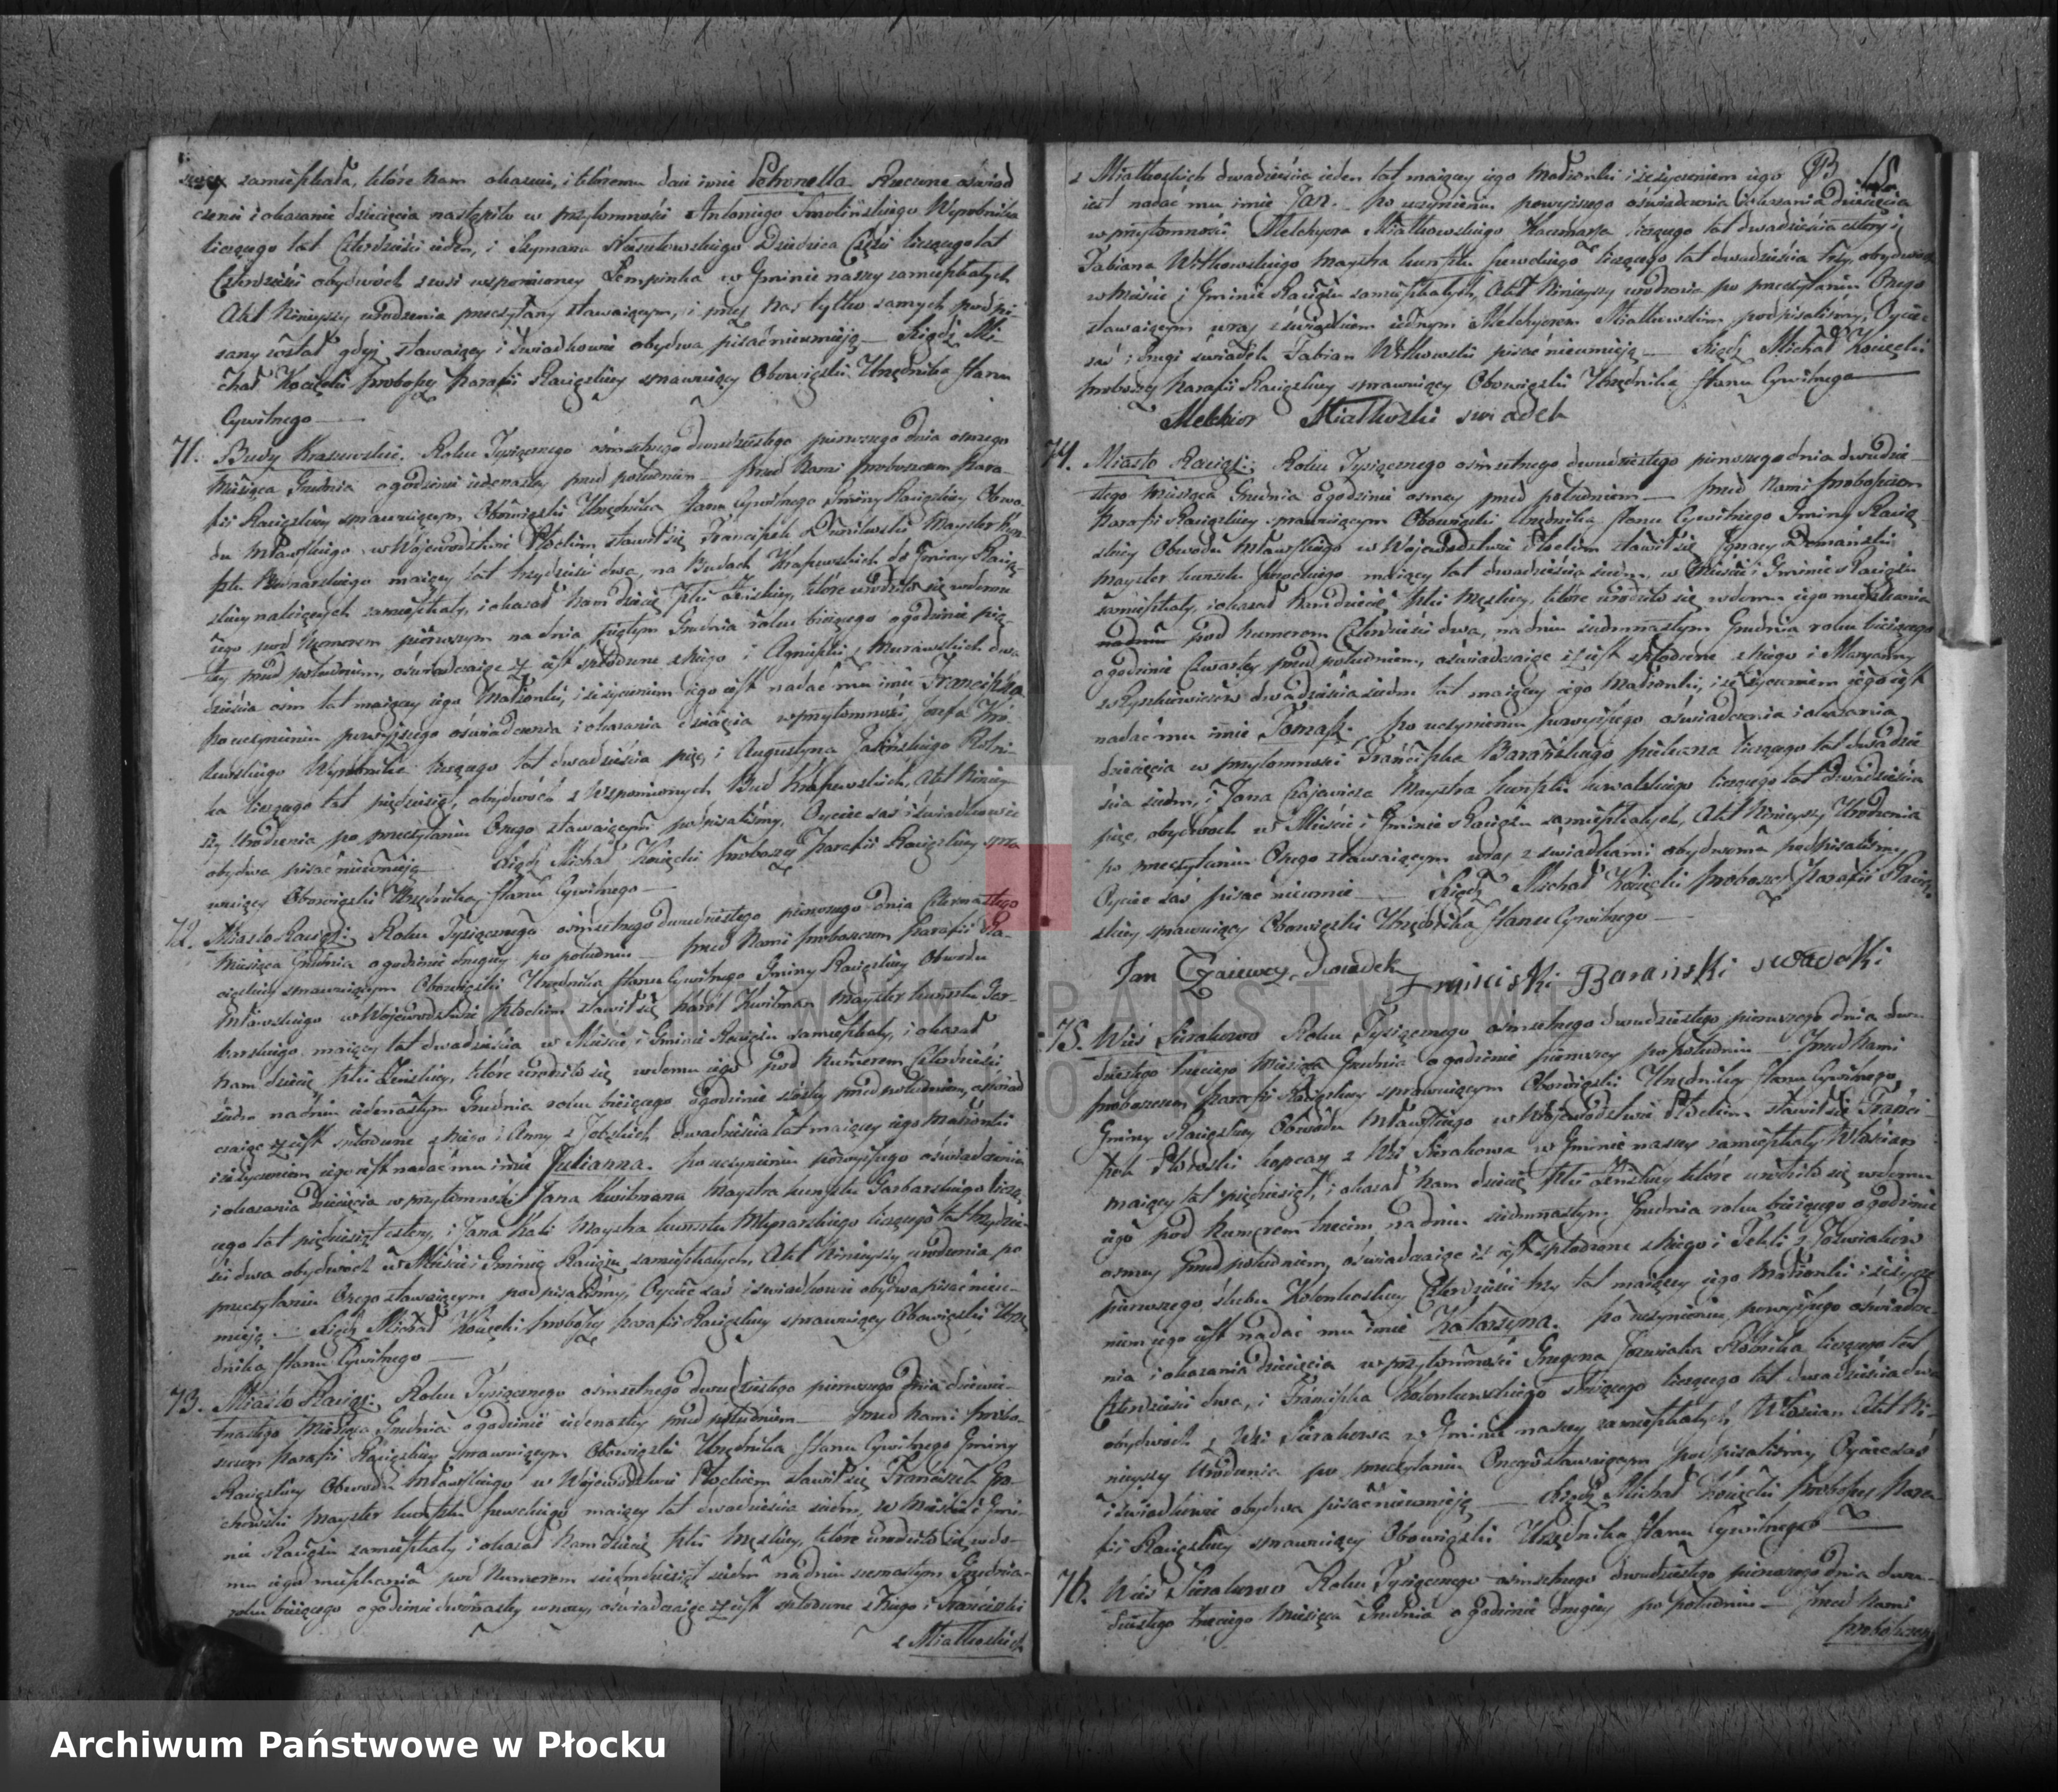 zamieszkała, które nam okazuie, i któremu daie imie Petronella. Rzeczone oświad
czenie i okazanie dziecięcia nastąpiło w przytomności Antoniego Smolińskiego Wyrobnika
liczącego lat Czterdzieści ieden, i Szymana Dziedzica Części liczącego lat
Czterdzieści obydwóch z wsi wspomioney Lempinka w Gminie naszey zamieszkałych
Akt Ninieyszy urodzenia przeczytany stawaiącym, i przez nas tylko samych podpi-
sany został gdyż stawaiący i świadkowie obydwa pisać nieumieją — Xiądz Mi-
chał Kocięcki Proboszcz Parafii Raciązkiey sprawuiący Obowiązki Urzędnika Stanu
Cywilnego —
71. Budy Kraszewskie. Roku Tysiącznego ośmsetnego dwudziestego pierwszego dnia osmego
Miesiąca Grudnia o godzinie iedenastey przed południem — Przed Nami Proboszczem Para-
fii Raciązkiey sprawuiącym Obowiązki Urzędnika Stanu Cywilnego Gminy Raciązkiey Obwo-
du Mławskiego w Województwie Płockim stawił się Franciszek Mayster Kun-
sztu Bednarskiego maiący lat trzydzieści dwa, na Budach Kraszewskich do Gminy Raciąz-
kiey należących zamieszkały, i okazał Nam dziecię płci Żeńskiey, które urodziło się w domu
iego pod Numerem pierwszym na dniu piątym Grudnia roku bieżącego o godzinie pią-
tey przed południem, oświadczaiąc iż iest spłodzone z niego i Agnieszki z Murawskich dwa
dzieścia ośm lat maiącey iego Małżonki, i że życzeniem iego iest nadać mu imie Franciszka
Po uczynieniu powyższego oświadczenia i okazania dziecięcia w przytomności Józefa
Wyrobnika liczącego lat dwadzieścia pięć i Augustyna Jasińskiego Rolni-
ka liczącego lat pięćdziesiąt, obydwóch z Wspomionych Bud Kraszewskich, Akt Niniey-
szy Urodzenia po przeczytaniu Onego stawaiącym podpisaliśmy, Oyciec zaś i świadkowie
obydwa pisać nieumieją — Xiądz Michał Kocięcki Proboszcz Parafii Raciązkiey spra
wuiący Obowiązki Urzędnika Stanu Cywilnego —
72. Miasto Raciąż. Roku Tysiącznego ośmsetnego dwudziestego pierwszego dnia czternastego
Miesiąca Grudnia o godzinie drugiey po południu — Przed Nami Proboszczem Parafii Ra-
ciązkiey sprawuiącym Obowiązki Urzędnika Stanu Cywilnego Gminy Raciązkiey Obwodu
Mławskiego w Województwie Płockim stawił się Karol Kwilman Mayster kunsztu Gar-
barskiego maiący lat dwadzieścia w Mieście i Gminie Raciążu zamieszkały, i okazał
Nam dziecię płci Żeńskiey, które urodziło się w domu iego pod Numerem Czterdzieści
siedm na dniu iedenastym Grudnia roku bieżącego o godzinie szóstey przed południem, oświad
czaiąc iż iest spłodzone z niego i Anny z dwadzieścia lat maiącey iego Małżonki
i że życzeniem iego iest nadać mu imie Julianna. Po uczynieniu powyższego oświadczenia
i okazania dziecięcia w przytomności Jana Kwilmana Maystra kunsztu Garbarskiego liczą
cego lat pięćdziesiąt cztery, i Jana Kali Maystra kunsztu Młynarskiego liczącego lat trzydzie-
ści dwa obydwóch w Mieście i Gminie Raciążu zamieszkałych, Akt Ninieyszy urodzenia po
przeczytaniu Onego stawaiącym podpisaliśmy, Oyciec zaś i świadkowie obydwa pisać nieu-
mieją — Xiądz Michał Kocięcki Proboszcz Parafii Raciązkiey sprawuiący Obowiązki Urzę
dnika Stanu Cywilnego —
73. Miasto Raciąż. Roku Tysiącznego ośmsetnego dwudziestego pierwszego dnia dziewię-
tnastego Miesiąca Grudnia o godzinie iedenastey przed południem — Przed Nami Probo-
szczem Parafii Raciązkiey sprawuiącym Obowiązki Urzędnika Stanu Cywilnego Gminy
Raciązkiey Obwodu Mławskiego w Województwie Płockim stawił się Franciszek Gro-
chowski Mayster kunsztu szewckiego maiący lat dwadzieścia siedm, w Mieście i Gmi-
nie Raciążu zamieszkały i okazał Nam dziecię płci Męzkiey, które urodziło się w do-
mu iego mieszkania pod Numerem siedmdziesiąt siedm na dniu Grudnia
roku bieżącego o godzinie dwónastey w nocy, oświadczaiąc iż iest spłodzone z Niego i Franciszki
z Miałkoskich
z Miałkoskich dwadzieścia ieden lat maiącey iego Małżonki i że życzeniem iego
iest nadać mu imie Jan. Po uczynieniu powyższego oświadczenia i okazania dziecięcia
w przytomności Melchyora Miałkowskiego Kaczmarza liczącego lat dwadzieścia cztery i
Fabiana Witkowskiego Maystra kunsztu szewckiego liczącego lat dwadzieścia trzy, obydwóch
w Mieście i Gminie Raciążu zamieszkałych, Akt Ninieyszy urodzenia po przeczytaniu Onego
stawaiącym wraz z świadkiem iednym Melchyorem Miałkowskim podpisaliśmy, Oyciec
zaś i drugi świadek Fabian Witkowski pisać nieumieją — Xiądz Michał Kocięcki
Proboszcz Parafii Raciązkiey sprawuiący Obowiązki Urzędnika Stanu Cywilnego —
Melchior Miałkoski swiadek
74. Miasto Raciąż. Roku Tysiącznego ośmsetnego dwudziestego pierwszego dnia dwudzie-
stego Miesiąca Grudnia o godzinie osmey przed południem — Przed Nami Proboszczem
Parafii Raciązkiey sprawuiącym Obowiązki Urzędnika Stanu Cywilnego Gminy Raciąz-
kiey Obwodu Mławskiego w Województwie Płockim stawił się Ignacy Domański
Mayster kunsztu szewckiego maiący lat dwadzieścia siedm, w Mieście i Gminie Raciążu
zamieszkały, i okazał Nam dziecię płci Męzkiey, które urodziło się w domu iego mieszkania
na dniu pod Numerem Czterdzieści dwa, na dniu siedmnastym Grudnia roku bieżącego
o godzinie czwartey przed południem, oświadczaiąc iż iest spłodzone z niego i Maryanny
z dwadzieścia siedm lat maiącey iego Małżonki, i że życzeniem iego iest
nadać mu imie Tomasz. Po uczynieniu powyższego oświadczenia i okazania
dziecięcia w przytomności Franciszka Barańskiego piekarza liczącego lat dwadzie
ścia siedm, i Jana Czajewicza Maystra kunsztu kowalskiego liczącego lat dwadzieścia
pięć, obydwóch w Mieście i Gminie Raciążu zamieszkałych, Akt Ninieyszy Urodzenia
po przeczytaniu Onego stawaiącym wraz z świadkami obydwoma podpisaliśmy
Oyciec zaś pisać nieumie — Xiądz Michał Kocięcki Proboszcz Parafii Raciąz-
kiey sprawuiący Obowiązki Urzędnika Stanu Cywilnego —
Jan Czaiewcz swiadek Barainski
75. Wieś Sierakowo Roku Tysiącznego ośmsetnego dwudziestego pierwszego dnia dwu-
dziestego trzeciego Miesiąca Grudnia o godzinie pierwszey po południu — Przed Nami
Proboszczem Parafii Raciązkiey sprawuiącym Obowiązki Urzędnika Stanu Cywilnego
Gminy Raciązkiey Obwodu Mławskiego w Województwie Płockim stawił się Franci-
szek z Wsi Sierakowa w Gminie naszey zamieszkały Włościan
maiący lat pięćdziesiąt, i okazał Nam dziecię płci Żeńskiey które urodziło się w domu
iego pod Numerem trzecim na dniu siedmnastym Grudnia roku bieżącego o godzinie
osmey przed południem, oświadczaiąc iż iest spłodzone z niego i Tekli z Jóźwiaków
pierwszego ślubu Kolonkoskiey Czterdzieści trzy lat maiącey iego Małżonki i że życze
niem iego iest nadać mu imie Katarzyna. Po uczynieniu powyższego oświadcze-
nia i okazania dziecięcia w przytomności Grzegorza Jóźwiaka Rolnika liczącego lat
Czterdzieści dwa, i Franciszka Kolonkowskiego służącego liczącego lat dwadzieścia dwa
obydwóch z Wsi Sierakowa w Gminie naszey zamieszkałych, Włościan Akt Ni-
nieyszy Urodzenia po przeczytaniu Onego stawaiącym podpisaliśmy Oyciec zaś
i świadkowie obydwa pisać nieumieją — Xiądz Michał Kocięcki Proboszcz Para-
fii Raciązkiey sprawuiący Obowiązki Urzędnika Stanu Cywilnego —
76. Wieś Sierakowo Roku Tysiącznego ośmsetnego dwudziestego pierwszego dnia dwu-
dziestego trzeciego Miesiąca Grudnia o godzinie drugiey po południu — Przed Nami
Proboszczem
ARCHIWUM PAŃSTWOWE
W PŁOCKU
Archiwum Państwowe w Płocku